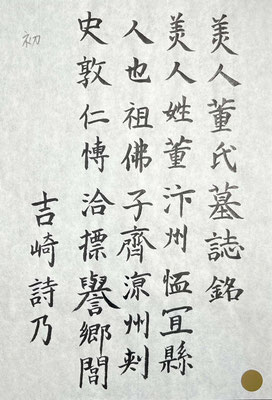 美人董氏墓誌銘
美人姓董汴州恤冝縣
人也祖佛子齊涼州刺
史敦仁愽洽標譽鄉閭
吉崎詩乃
初